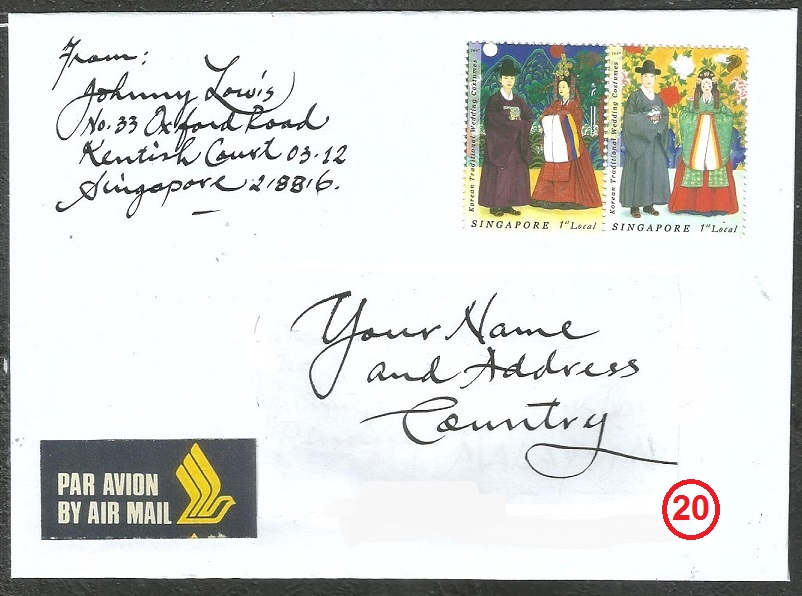 From:
Johnny Lowis
No. 33 Oxford Road
Kentish Court 03-12
Singapore 218816.
Korean Traditional Wedding Costumes
SINGAPORE 1st Local
2007
Korean Traditional Wedding Costumes
SINGAPORE 1st Local
Your Name
and Address
Country
PAR AVION
BY AIR MAIL
20